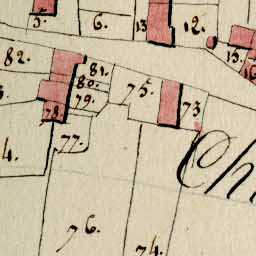 5. 6. 13 12.
82. 81. 15. 16
80. 75. 73
79.
78.
4. 77.
Ch
76. 74.